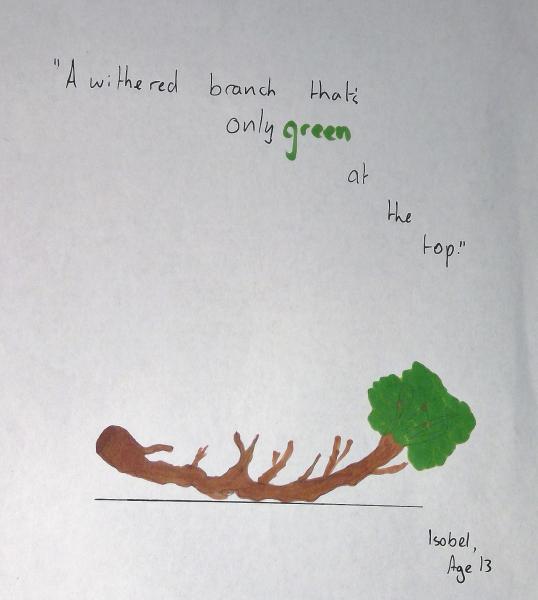 "A withered branch that's
only green
at
the
top."
Isobel,
Age 13